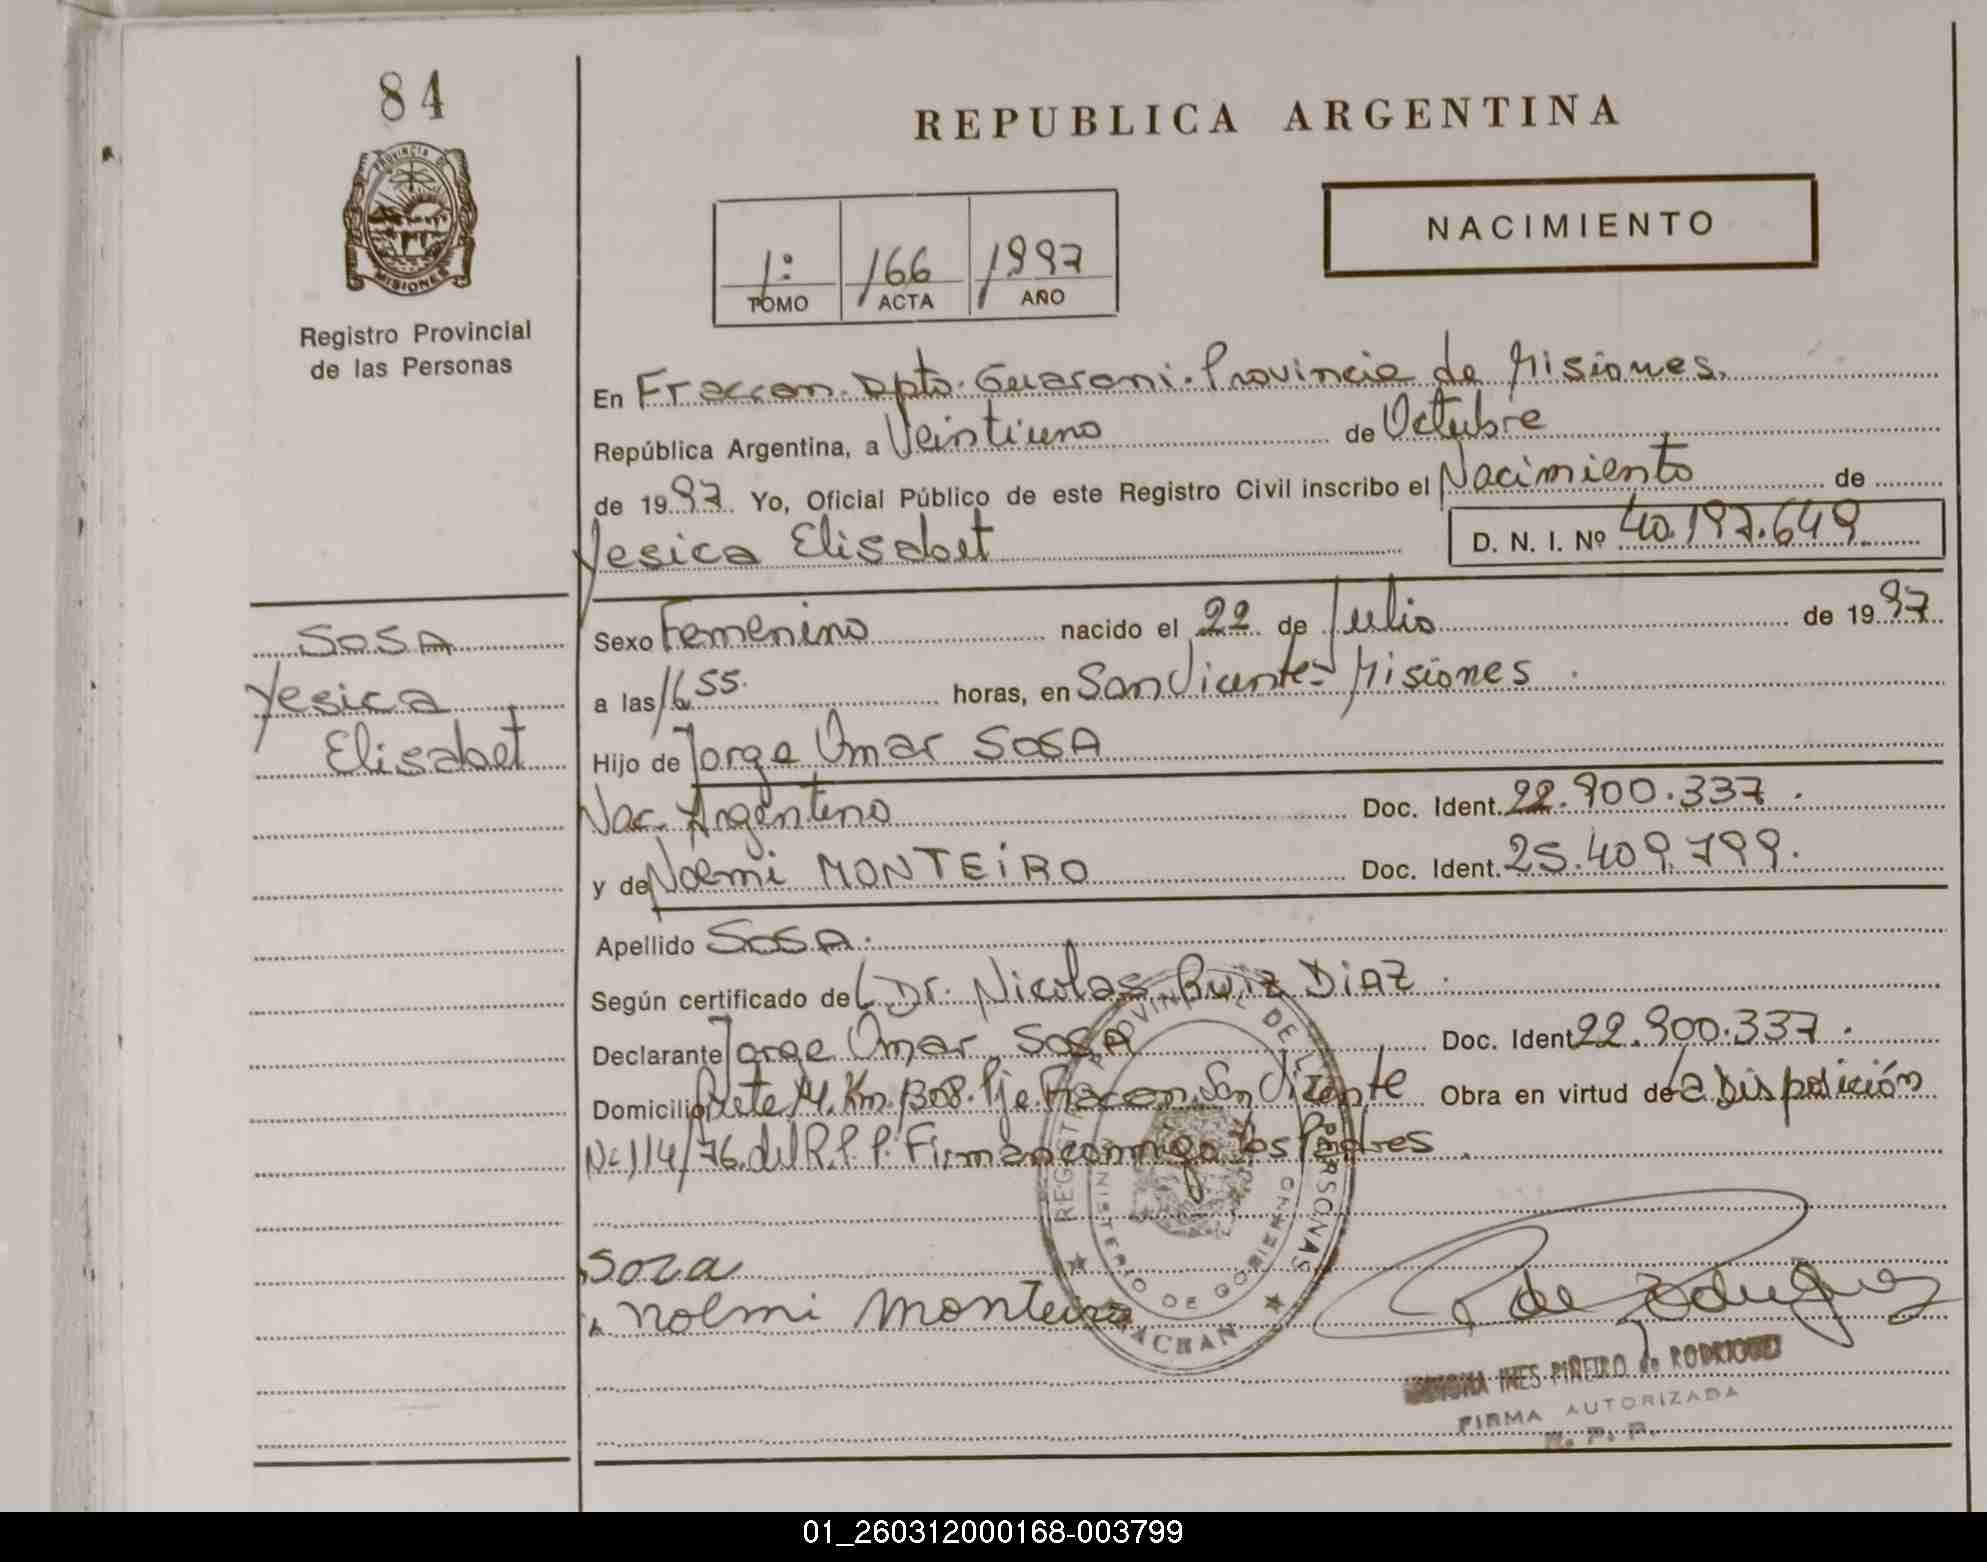 84
PROVINCIA DE
MISIONES
Registro Provincial
de las Personas
REPUBLICA ARGENTINA
NACIMIENTO
1º 166 1997
TOMO ACTA AÑO
En Fraccan. Dpto. Guarani. Provincia de Misiones.
República Argentina, a Veintiuno de Octubre
de 1997. Yo, Oficial Público de este Registro Civil inscribo el Nacimiento de
Yesica Elisabet D. N. I. Nº 40.197.649
SOSA
Yesica
Elisabet
Sexo Femenino nacido el 22 de Julio de 1997.
a las 16.55. horas, en San Vicente - Misiones
Hijo de Jorge Omar SOSA
Nac. Argentino Doc. Ident. 22.900.337.
y de Noemi MONTEIRO Doc. Ident. 25.409.799.
Apellido SOSA.
Según certificado del Dr. Nicolas Ruiz DIAZ.
Declarante Jorge Omar SOSA Doc. Ident 22.900.337.
Domicilio Ruta 14. Km. 1308. Pje. Fracan. San Vicente Obra en virtud de la Disposición
Nº 114/76. del R.P.P. Firman conmigo los Padres
Soza
Noemi Monteiro
MINISTERIO DE GOBIERNO
INES PIÑEIRO de RODRIGUEZ
FIRMA AUTORIZADA
R. P. P.
01_260312000168-003799